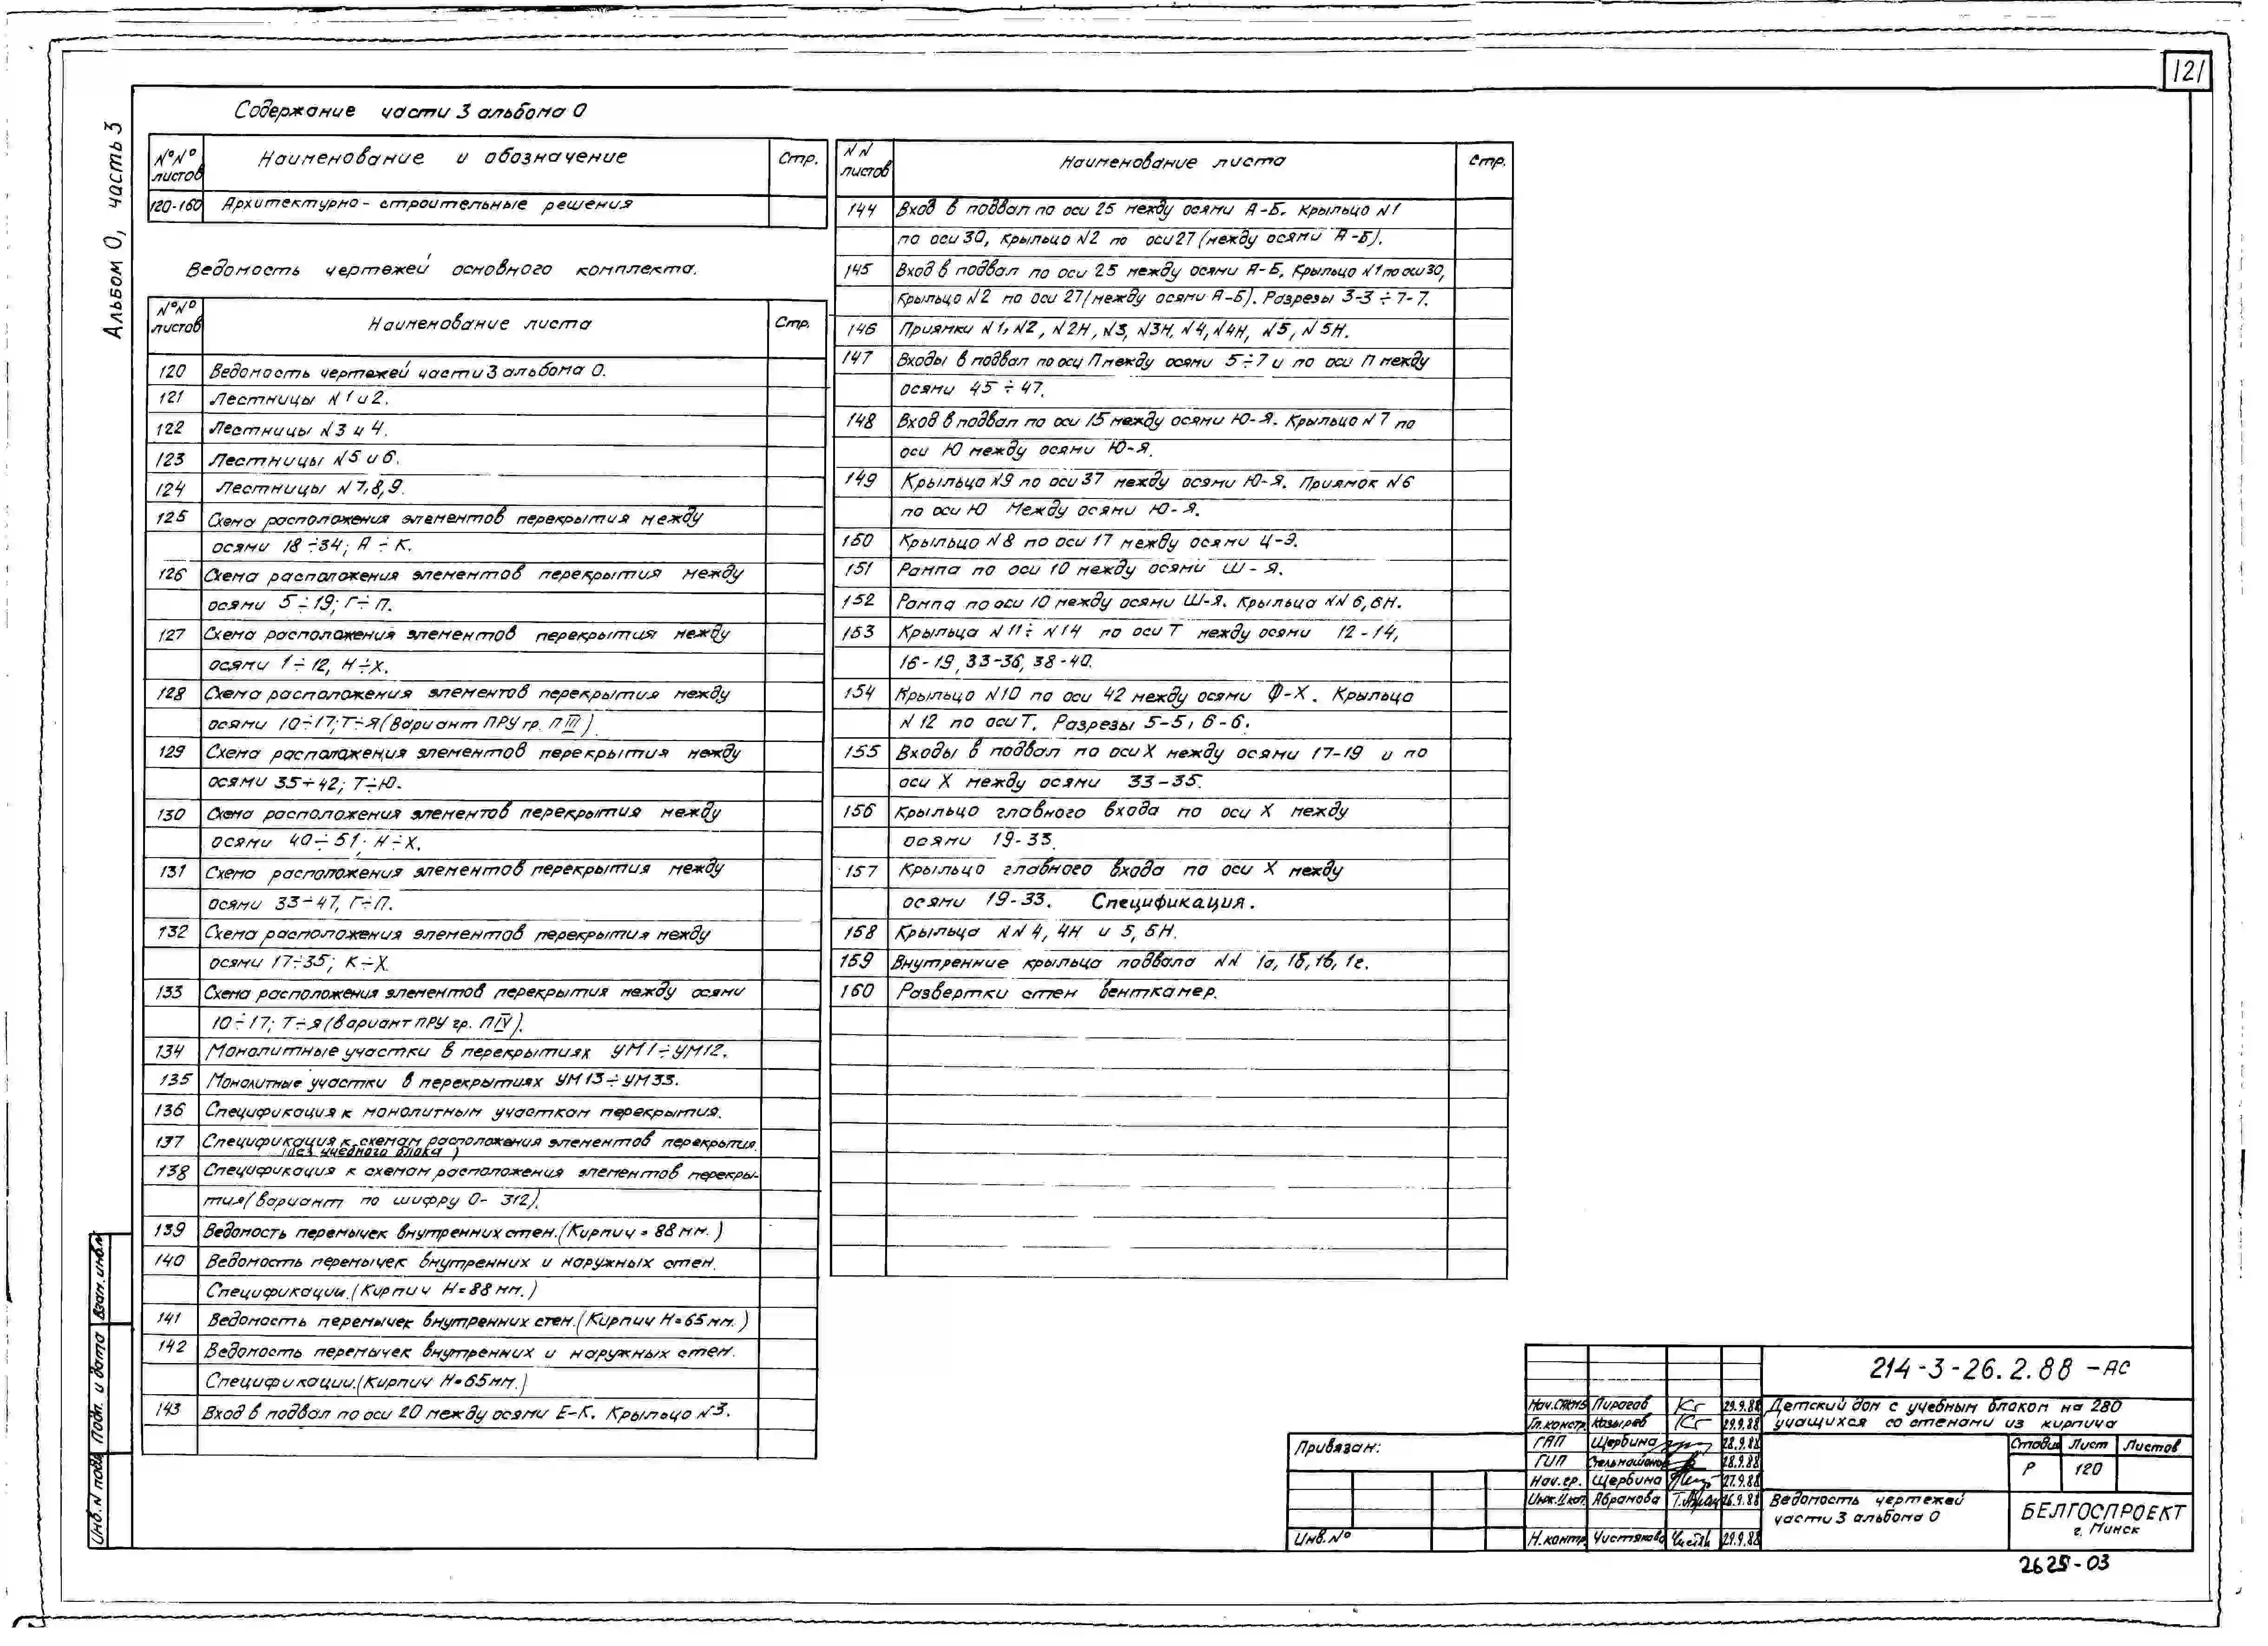 121
Альбом 0, часть 3
Содержание части 3 альбома 0
№№ листов Наименование и обозначение Стр.
120-160 Архитектурно-строительные решения
Ведомость чертежей основного комплекта.
№№ листов Наименование листа Стр.
120 Ведомость чертежей части 3 альбома 0.
121 Лестницы N 1 и 2.
122 Лестницы N 3 и 4.
123 Лестницы N 5 и 6.
124 Лестницы N 7,8,9.
125 Схема расположения элементов перекрытия между
осями 18÷34; А÷К.
126 Схема расположения элементов перекрытия между
осями 5÷19; Г÷П.
127 Схема расположения элементов перекрытия между
осями 1÷12, Н÷Х.
128 Схема расположения элементов перекрытия между
осями 10÷17; Т÷Я (вариант ПРУ гр. П III)
129 Схема расположения элементов перекрытия между
осями 35÷42; Т÷Ю.
130 Схема расположения элементов перекрытия между
осями 40÷51; Н÷Х.
131 Схема расположения элементов перекрытия между
осями 33÷47, Г÷П.
132 Схема расположения элементов перекрытия между
осями 17÷35; К÷Х.
133 Схема расположения элементов перекрытия между осями
10÷17; Т÷Я (вариант ПРУ гр. П IV).
134 Монолитные участки в перекрытиях УМ1÷УМ12.
135 Монолитные участки в перекрытиях УМ13÷УМ33.
136 Спецификация к монолитным участкам перекрытия.
137 Спецификация к схемам расположения элементов перекрытия
(без учебного блока)
138 Спецификация к схемам расположения элементов перекры-
тия (вариант по шифру 0-312).
139 Ведомость перемычек внутренних стен. (Кирпич = 88 мм.)
140 Ведомость перемычек внутренних и наружных стен.
Спецификации. (Кирпич Н=88 мм.)
141 Ведомость перемычек внутренних стен. (Кирпич Н=65 мм.)
142 Ведомость перемычек внутренних и наружных стен.
Спецификации. (Кирпич Н=65 мм.)
143 Вход в подвал по оси 20 между осями Е-К. Крыльцо N 3.
NN листов Наименование листа Стр.
144 Вход в подвал по оси 25 между осями А-Б. Крыльцо N 1
по оси 30, крыльцо N 2 по оси 27 (между осями А-Б).
145 Вход в подвал по оси 25 между осями А-Б, Крыльцо N 1 по оси 30,
крыльцо N 2 по оси 27 (между осями А-Б). Разрезы 3-3÷7-7.
146 Приямки N 1, N 2, N 2Н, N 3, N 3Н, N 4, N 4Н, N 5, N 5Н.
147 Входы в подвал по оси П между осями 5÷7 и по оси П между
осями 45÷47.
148 Вход в подвал по оси 15 между осями Ю-Я. Крыльцо N 7 по
оси Ю между осями Ю-Я.
149 Крыльцо N 9 по оси 37 между осями Ю-Я. Приямок N 6
по оси Ю Между осями Ю-Я.
150 Крыльцо N 8 по оси 17 между осями Ц-Э.
151 Рампа по оси 10 между осями Ш-Я.
152 Рампа по оси 10 между осями Ш-Я. Крыльца NN 6,6Н.
153 Крыльца N 11÷N 14 по оси Т между осями 12-14,
16-19, 33-36, 38-40.
154 Крыльцо N 10 по оси 42 между осями Ф-Х. Крыльцо
N 12 по оси Т. Разрезы 5-5, 6-6.
155 Входы в подвал по оси Х между осями 17-19 и по
оси Х между осями 33-35.
156 Крыльцо главного входа по оси Х между
осями 19-33.
157 Крыльцо главного входа по оси Х между
осями 19-33. Спецификация.
158 Крыльца NN 4, 4Н и 5, 5Н.
159 Внутренние крыльца подвала NN 1а, 1б, 1в, 1г.
160 Развертки стен венткамер.
Взам. инв. N
Подп. и дата
Инв. N подл.
Привязан:
Инв. N°
214-3-26.2.88 -АС
Нач. САКМ5 Пирагов 29.9.88
Гл. констр. Козырев 29.9.88
ГАП Щербина 28.9.88
ГИП 28.9.88
Нач. гр. Щербина 27.9.88
Инж. II кат. Абрамова 26.9.88
Н. контр. Чистякова 29.9.88
Детский дом с учебным блоком на 280
учащихся со стенами из кирпича
Стадия Лист Листов
Р 120
Ведомость чертежей
части 3 альбома 0
БЕЛГОСПРОЕКТ
г. Минск
2625-03